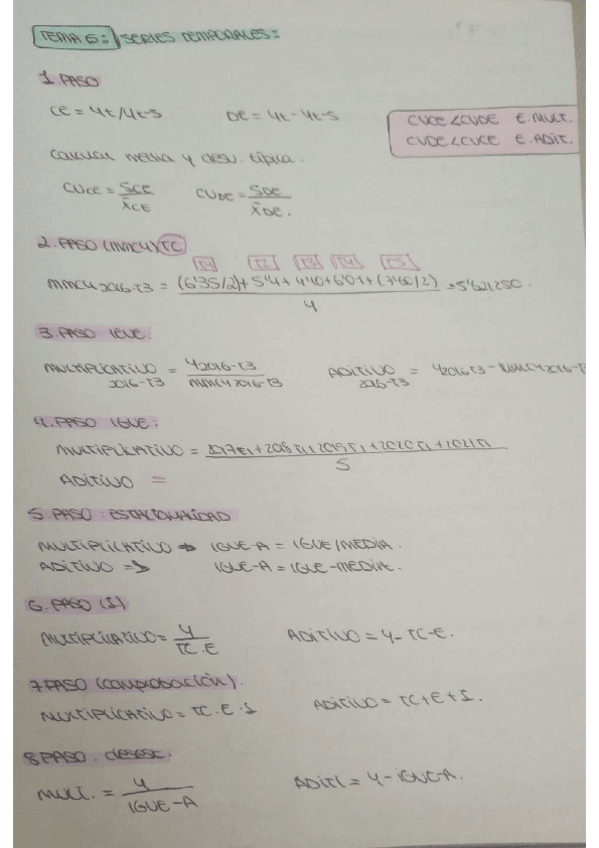 TEMA 6: SERIES TEMPORALES:
1. PASO
CE = Yt/Yt-s DE = Yt - Yt-s
CVCE < CVDE E. MULT.
CVDE < CVCE E. ADIT.
Calcular media y desv. típica.
CVCE = SCE / X̄CE CVDE = SDE / X̄DE.
2. PASO (MMC4) TC
T1 T2 T3 T4 T5
MMC4 2016-T3 = (6'35/2) + 5'4 + 4'40 + 6'01 + (7'60/2) / 4 = 5'621250.
3. PASO IEVE:
MULTIPLICATIVO 2016-T3 = Y2016-T3 / MMC4 2016-T3 ADITIVO 2016-T3 = Y2016T3 - MMC4 2016-T3
4. PASO IGVE:
MULTIPLICATIVO = 2017T1 + 2018T1 + 2019T1 + 2020T1 + 2021T1 / 5
ADITIVO =
5. PASO: ESTACIONALIDAD
MULTIPLICATIVO → IGVE-A = IGVE/MEDIA.
ADITIVO → IGVE-A = IGVE-MEDIA.
6. PASO (I)
MULTIPLICATIVO = Y / TC.E ADITIVO = Y - TC - E.
7 PASO (COMPROBACIÓN).
MULTIPLICATIVO = TC. E. I ADITIVO = TC + E + I.
8 PASO. desest.
MULT. = Y / IGVE-A ADITI = Y - IGVE-A.